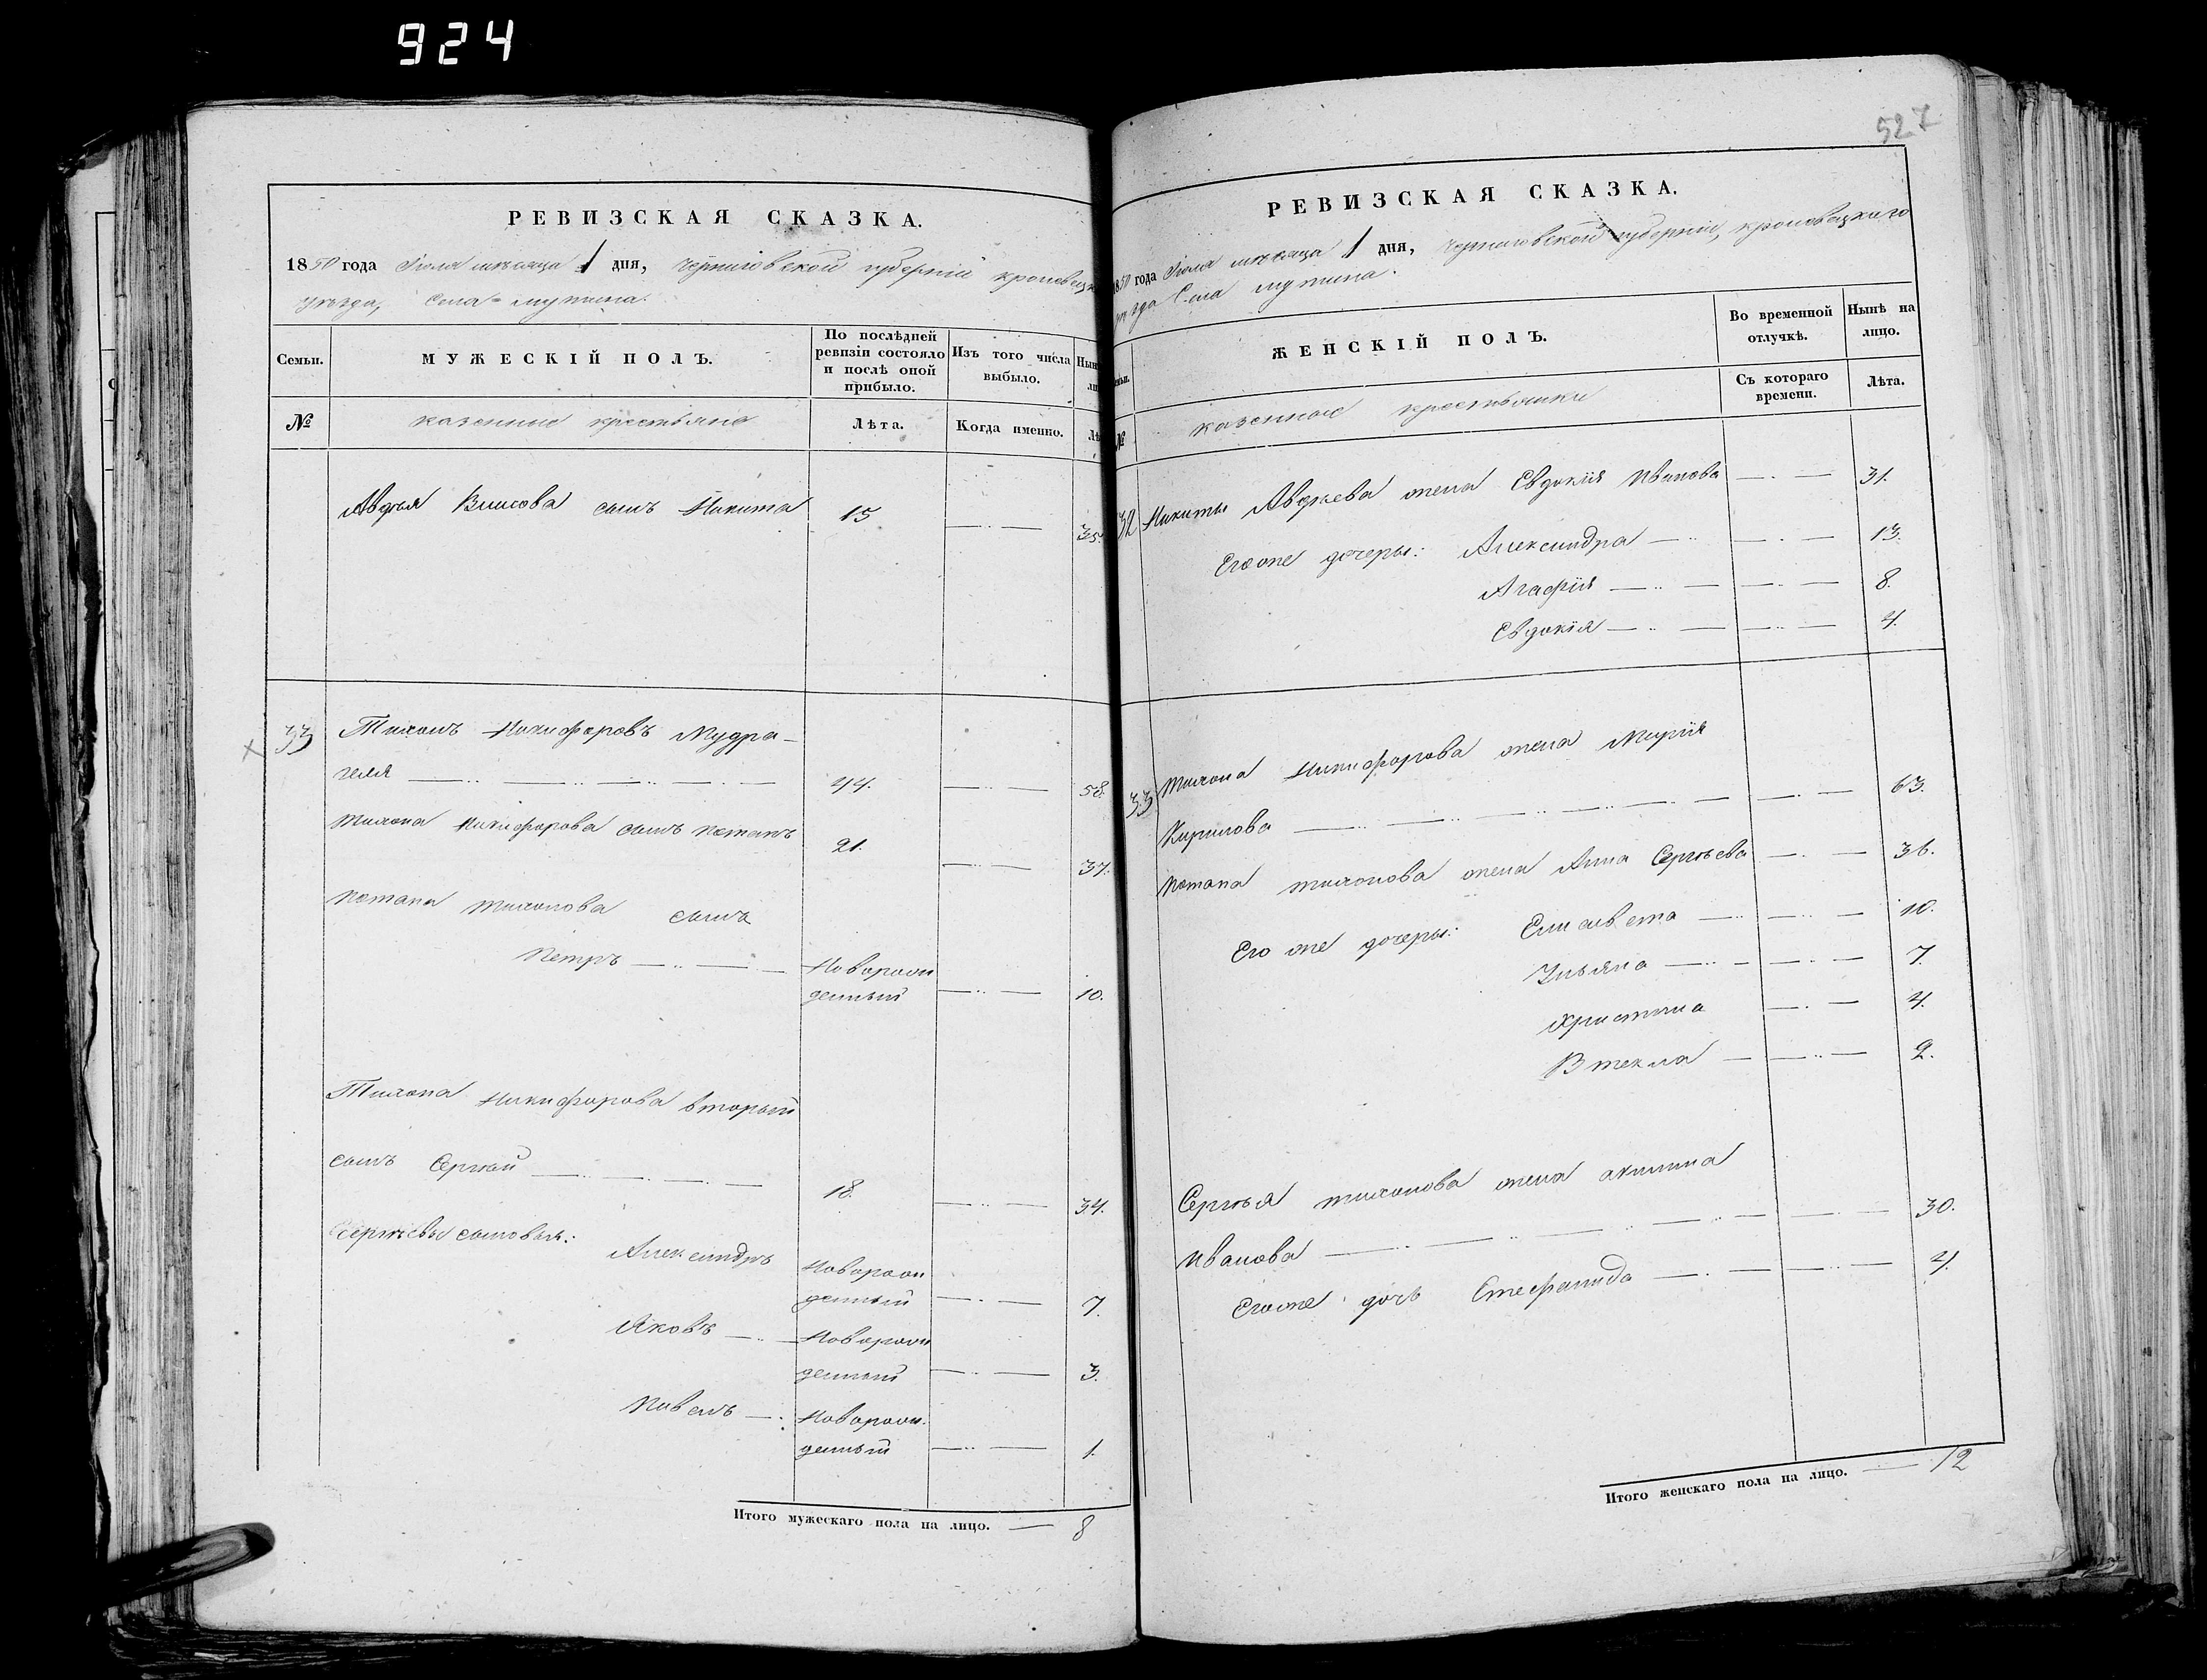 924
РЕВИЗСКАЯ СКАЗКА.
1850 года Іюля мѣсяца 1 дня, Черниговской губерніи кролевецк
уѣзда, Села мутина.
Семьи.
МУЖЕСКІЙ ПОЛЪ.
По послѣдней ревизіи состояло и послѣ оной прибыло.
Изъ того числа выбыло.
Нын
№
казенные крестьяне
Лѣта.
Когда именно.
Лѣ
Авдѣя сынъ Никита 15 35.
33 Тихонъ Никифоровъ Мудра-
геля 44. 58.
Тихона Никифорова сынъ Потапъ 21. 37.
Потапа Тихонова сынъ
Петръ Новорож
денный 10.
Тихона Никифорова вторый
сынъ Сергѣй 18. 34.
Сергѣевы сыновья:
Александръ Новорож
денный 7.
Яковъ Новорож
денный 3.
Павелъ Новорож.
денный 1.
Итого мужескаго пола на лицо. 8
527
РЕВИЗСКАЯ СКАЗКА.
1850 года Іюля мѣсяца 1 дня, Черниговской губерніи, кролевецкаго
уѣзда Села мутина.
ЖЕНСКІЙ ПОЛЪ.
Во временной отлучкѣ.
Нынѣ на лицо.
№
казенные крестьянки
Съ котораго времени.
Лѣта.
32 Никиты Авдѣева жена Евдокія Иванова 31.
Его же дочеры: Александра 13.
Агафія 8.
Евдокія 4.
33 Тихона Никифорова жена Марія
Кирилова 63.
Потапа тихонова жена Анна Сергѣева 36.
Его же дочеры: Елисавета 10.
Ульяна 7.
Христина 4.
Втекла 2.
Сергѣя тихонова жена акилина
Иванова 30.
Его же дочь Стефанида 4.
Итого женскаго пола на лицо. 12